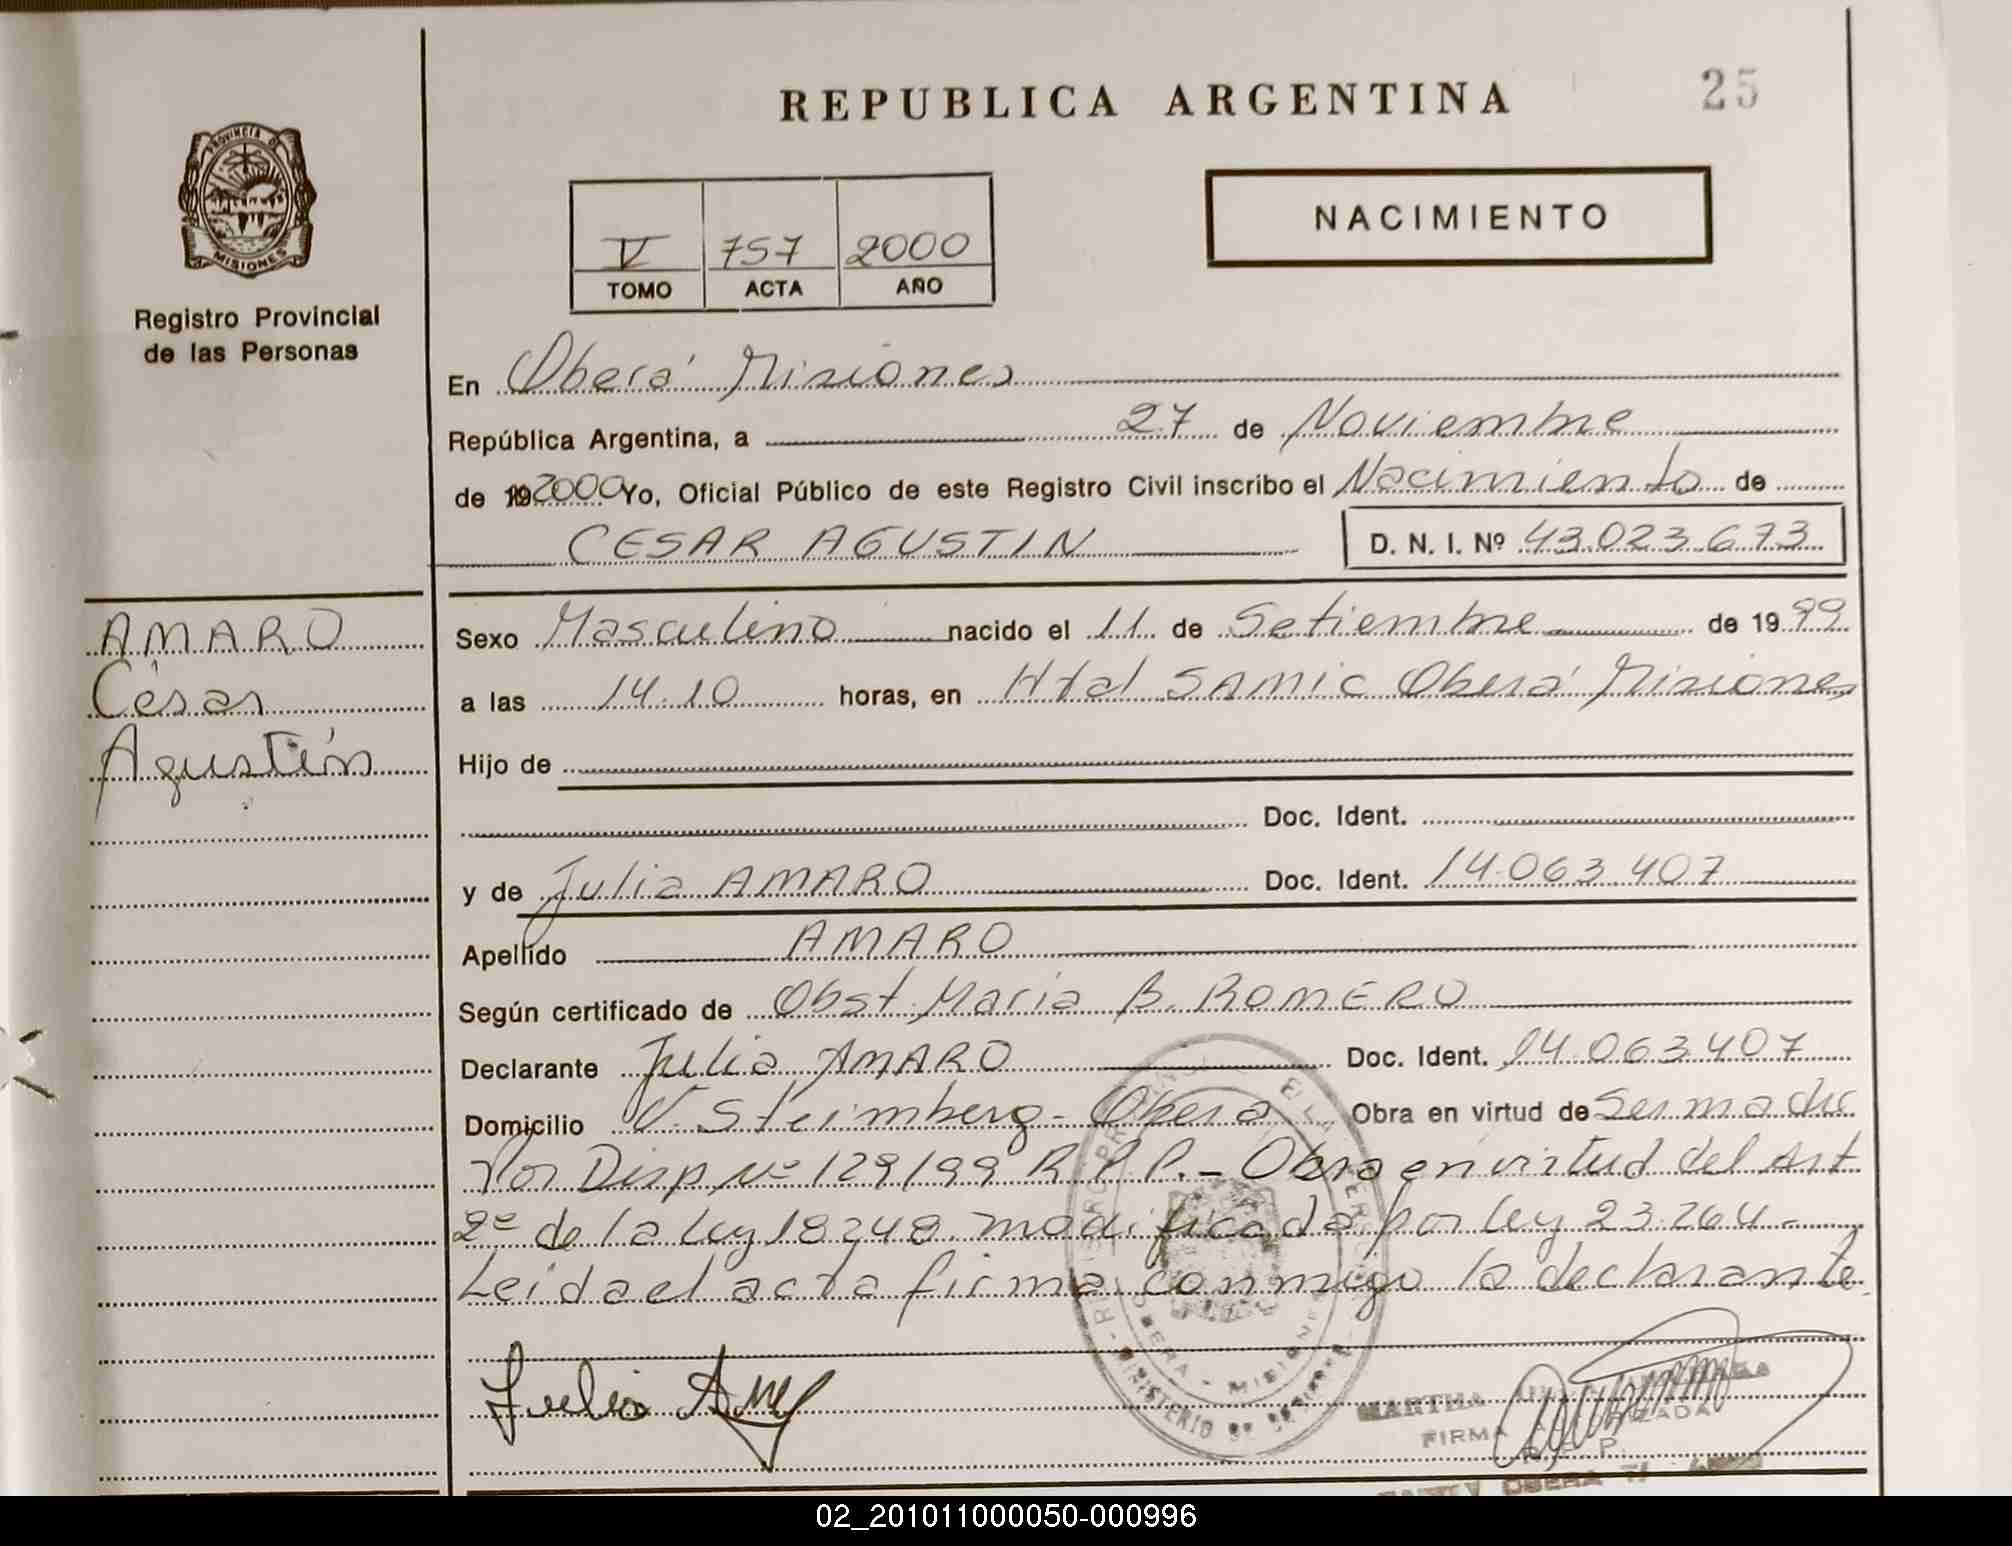 REPUBLICA ARGENTINA
25
PROVINCIA DE
MISIONES
Registro Provincial
de las Personas
V 757 2000
TOMO ACTA AÑO
NACIMIENTO
En Oberá Misiones
República Argentina, a 27 de Noviembre
de 2000 Yo, Oficial Público de este Registro Civil inscribo el Nacimiento de
CESAR AGUSTIN D. N. I. Nº 43.023.673
AMARO
César
Agustín
Sexo Masculino nacido el 11 de Setiembre de 1999
a las 14.10 horas, en Htal SAMIC Oberá Misiones
Hijo de
Doc. Ident.
y de Julia AMARO Doc. Ident. 14.063.407
Apellido AMARO
Según certificado de Obst. Maria B. ROMERO
Declarante Julia AMARO Doc. Ident. 14.063.407
Domicilio V. Steimberg - Oberá Obra en virtud de
Por Disp Nº 129/99 R.P.P. - Obra en virtud del Art
2º de la Ley 18.248 modificada por Ley 23.264 -
Leida el acta firma conmigo la declarante.
Julia
OBERA - MISIONES
MARTHA
FIRMA AUTORIZADA
R. P. P.
OBERA
02_201011000050-000996